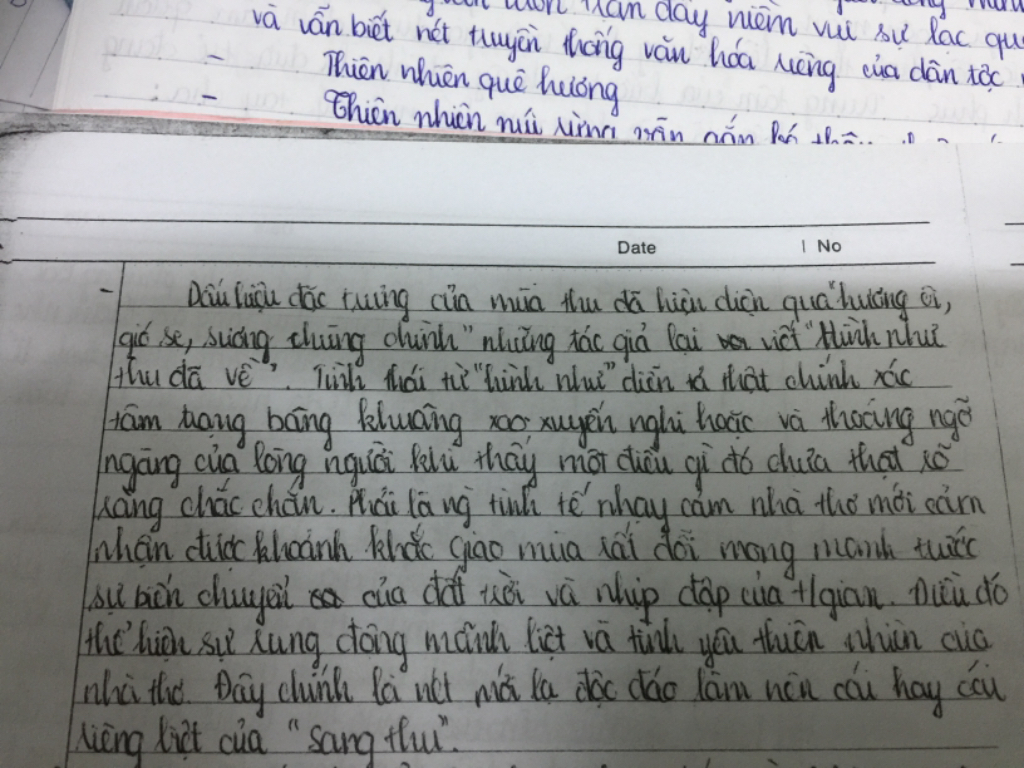 và vẫn biết nét truyền thống văn hóa riêng của dân tộc
- Thiên nhiên quê hương
- Thiên nhiên núi rừng vẫn gắn bó
Date | No
- Dấu hiệu đặc trưng của mùa thu đã hiện diện qua "hương ổi,
gió se, sương chùng chình" nhưng tác giả lại viết "Hình như
thu đã về". Tình thái từ "hình như" diễn tả thật chính xác
tâm trạng bâng khuâng xao xuyến nghi hoặc và thoáng ngỡ
ngàng của lòng người khi thấy một điều gì đó chưa thật rõ
ràng chắc chắn. Phải là ng tinh tế nhạy cảm nhà thơ mới cảm
nhận được khoảnh khắc giao mùa rất đỗi mong manh trước
sự biến chuyển của đất trời và nhịp đập của tgian. Điều đó
thể hiện sự rung động mãnh liệt và tình yêu thiên nhiên của
nhà thơ. Đây chính là nét mới lạ độc đáo làm nên cái hay cái
riêng biệt của "Sang thu".